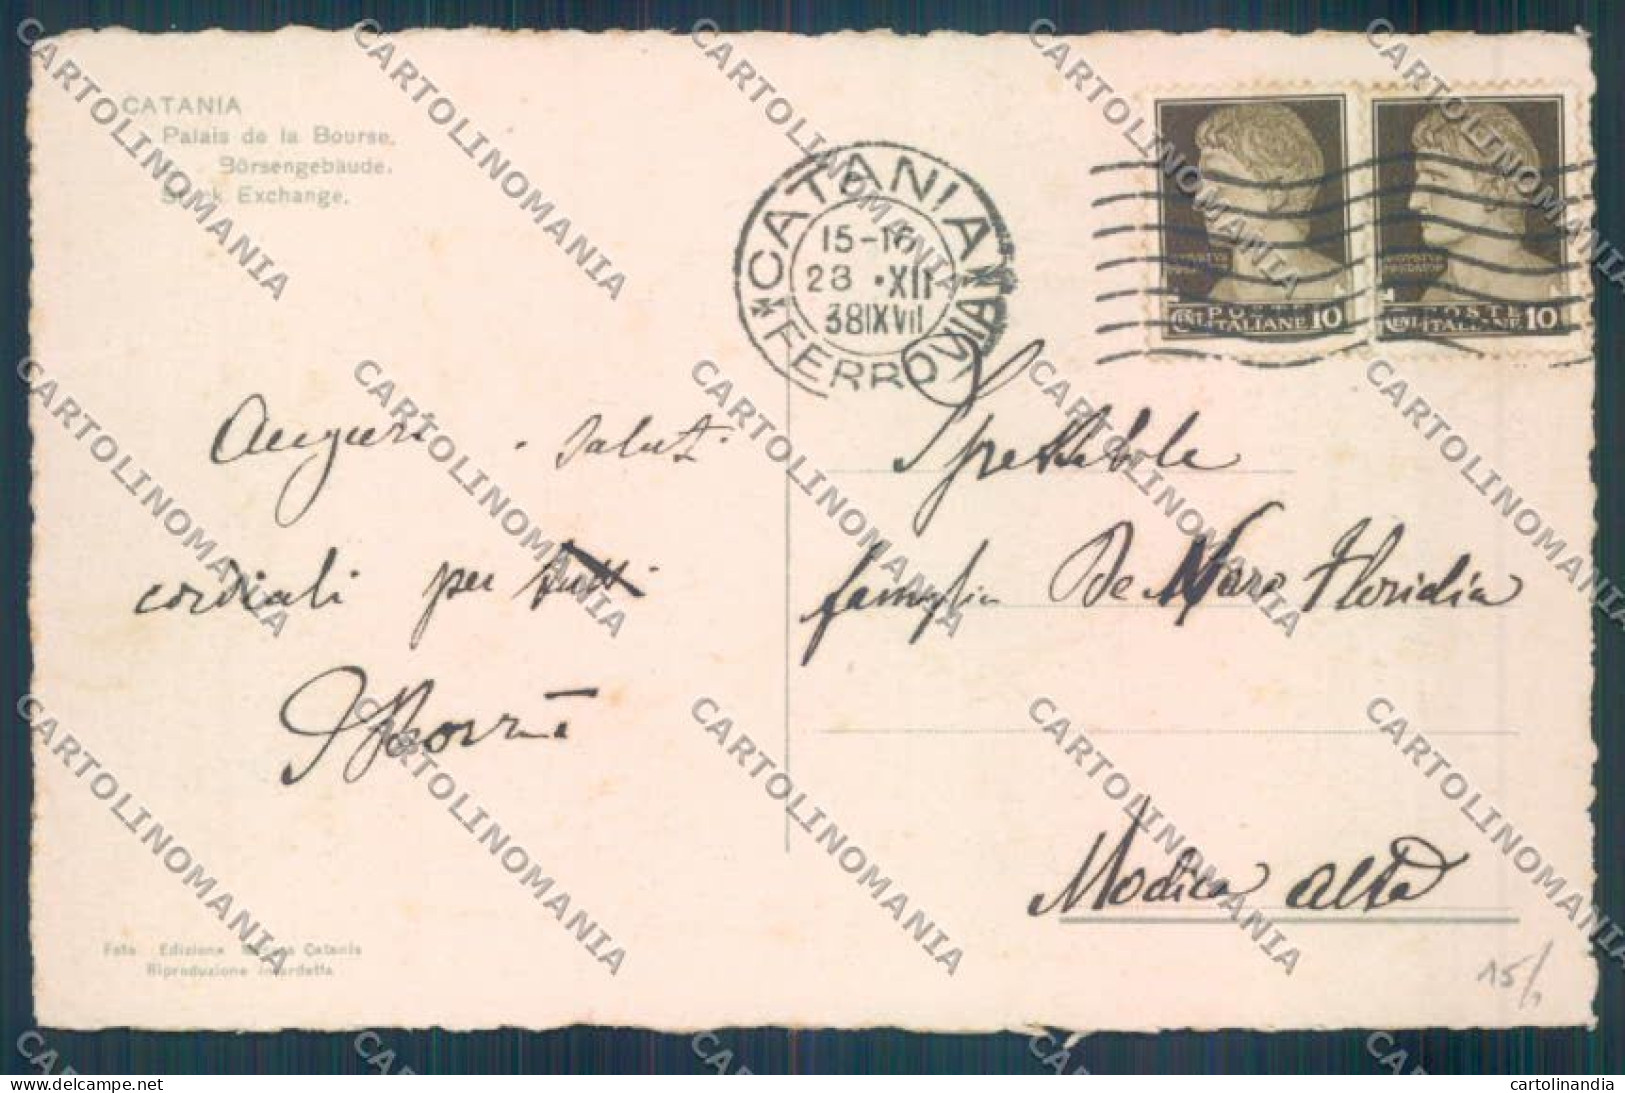 CATANIA
Palais de la Bourse.
Börsengebäude.
Stock Exchange.
CATANIA
FERROVIA
15-16
28 •XII
38|XVII
POSTE
CENT. ITALIANE 10
POSTE
CENT. ITALIANE 10
Auguri saluti
cordiali per tutti
Spettabile
famiglia De Naro Floridia
Modica alta
Foto Edizione Catania
Riproduzione Interdetta
15/
CARTOLINOMANIA
cartolinandia